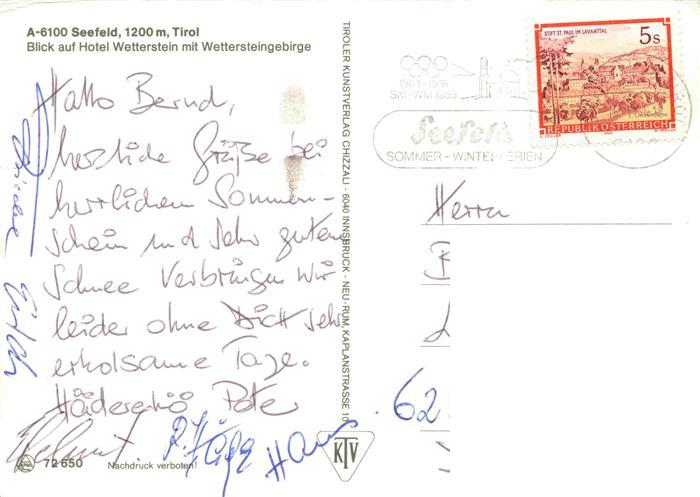 A-6100 Seefeld, 1200 m, Tirol
Blick auf Hotel Wetterstein mit Wettersteingebirge
Hallo Bernd,
herzliche Grüße bei
herrlichem Sonnen-
schein und sehr gutem
Schnee verbringen wir
leider ohne Dich sehr
erholsame Tage.
Pete
Helmut
Hans
72 650
Nachdruck verboten!
TIROLER KUNSTVERLAG CHIZZALI · 6040 INNSBRUCK - NEU-RUM, KAPLANSTRASSE 10
KTV
STIFT ST. PAUL IM LAVANTTAL
5s
REPUBLIK ÖSTERREICH
1964-1976
SKI-WM 1985
Seefeld
SOMMER - WINTERFERIEN
Herrn
B
62